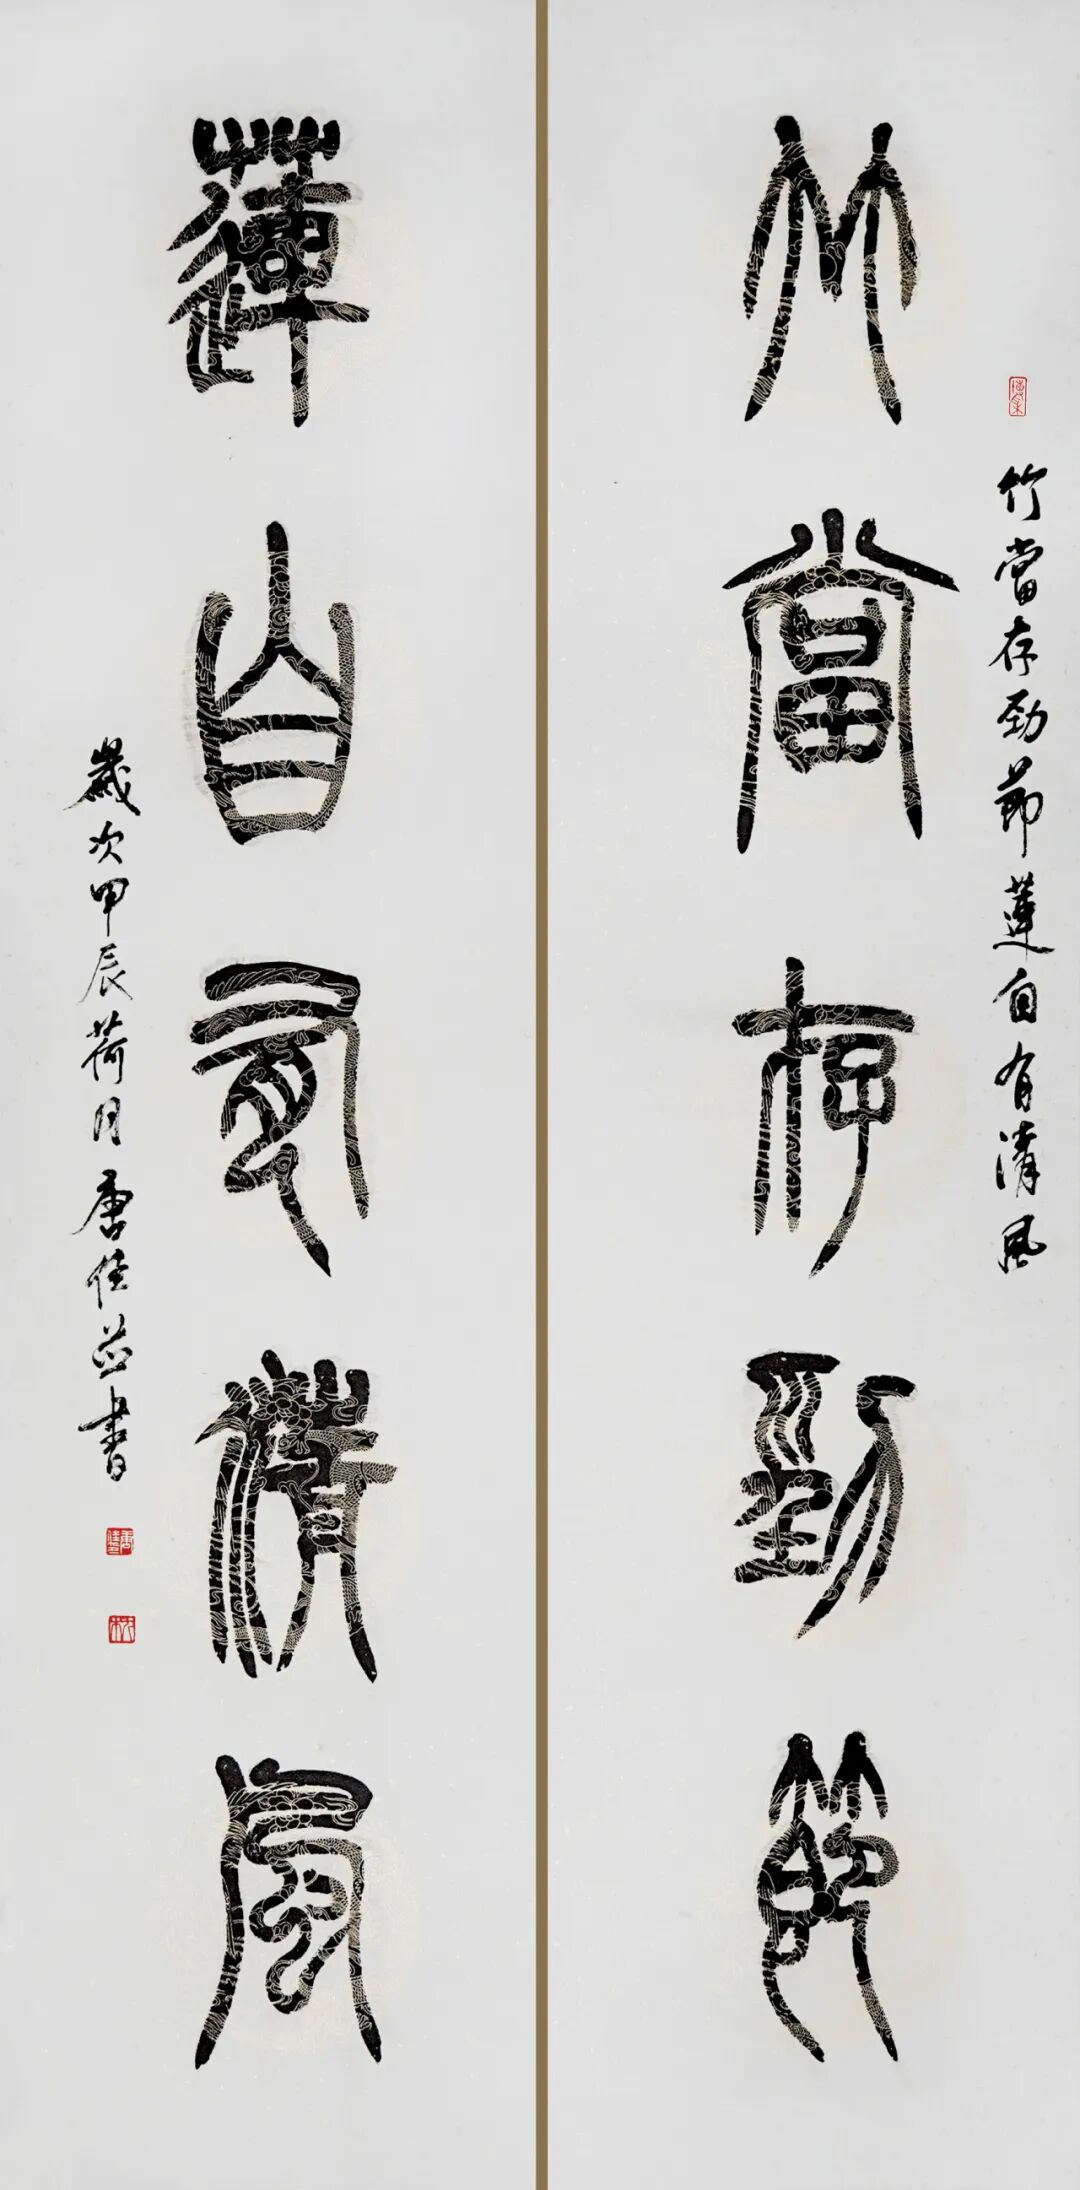 竹當存勁節蓮自有清風
竹當存勁節
蓮自有清風
歲次甲辰荷月唐佳益書